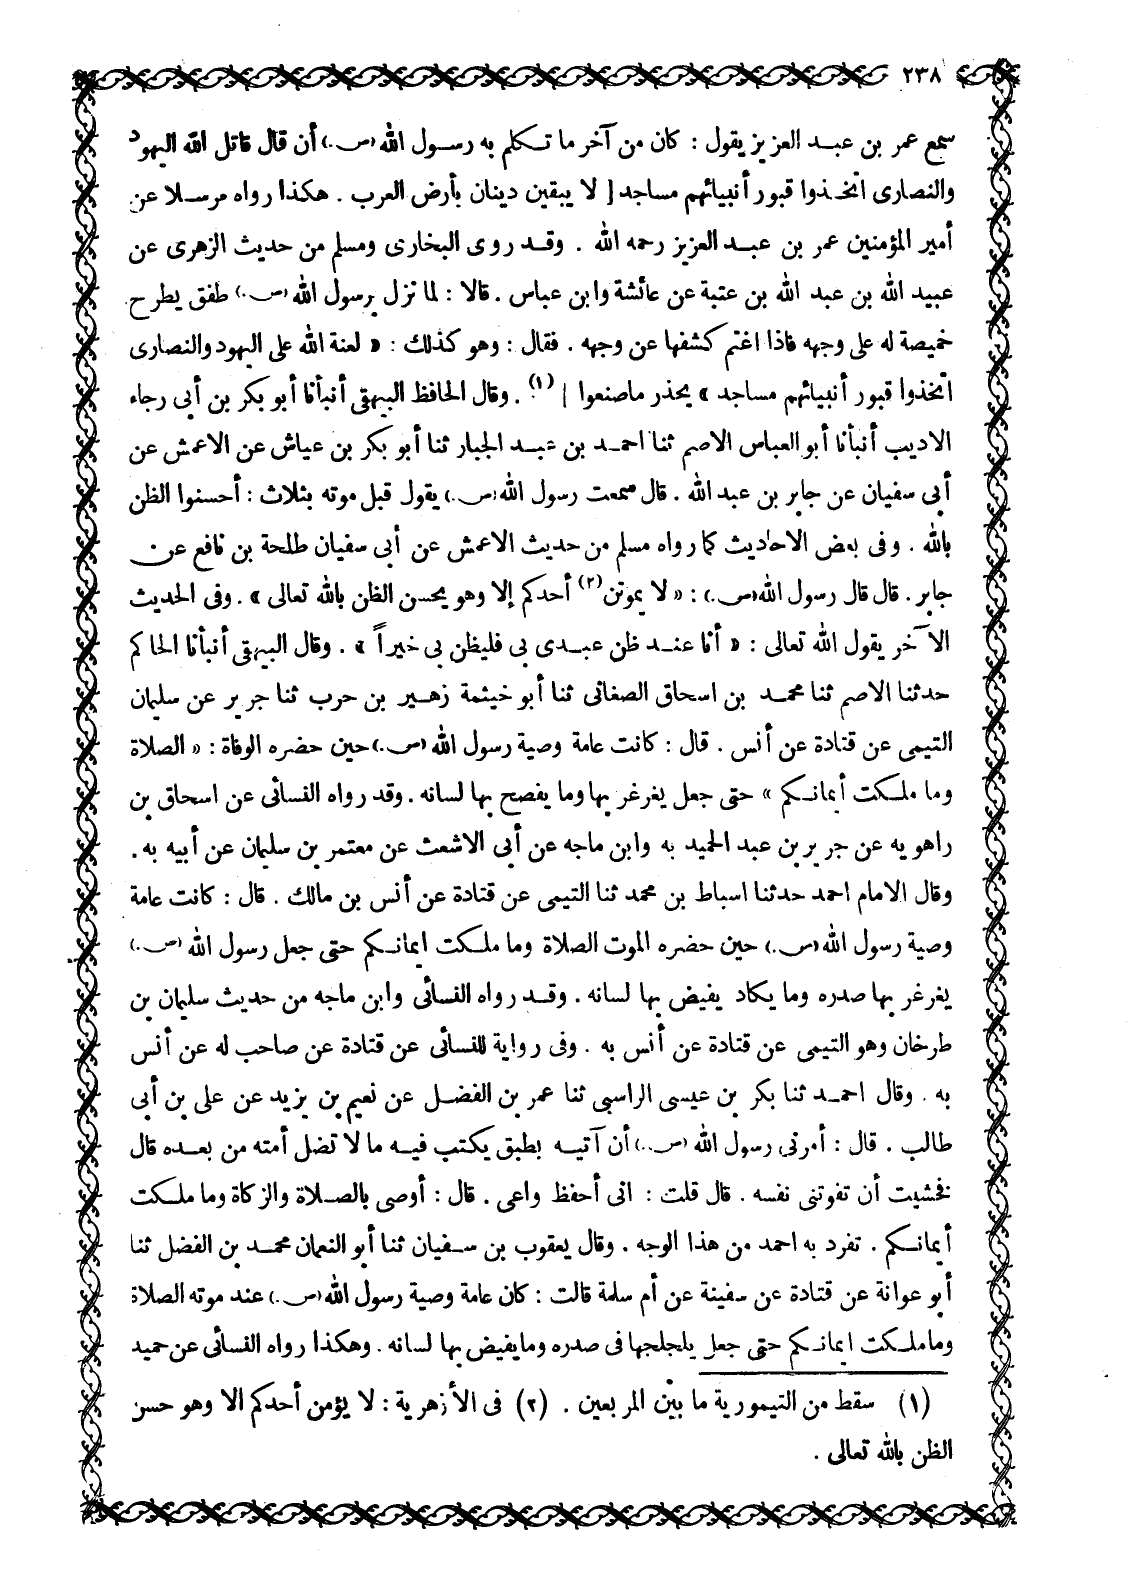 ٢٣٨
سمع عمر بن عبد العزيز يقول : كان من آخر ما تكلم به رسول الله (ص.) أن قال قاتل الله اليهود
والنصارى اتخذوا قبور أنبيائهم مساجد [ لا يبقين دينان بأرض العرب . هكذا رواه مرسلا عن
أمير المؤمنين عمر بن عبد العزيز رحمه الله . وقد روى البخارى ومسلم من حديث الزهرى عن
عبيد الله بن عبد الله بن عتبة عن عائشة وابن عباس . قالا : لما نزل برسول الله (ص.) طفق يطرح
خميصة له على وجهه فاذا اغتم كشفها عن وجهه . فقال : وهو كذلك : « لعنة الله على اليهود والنصارى
اتخذوا قبور أنبيائهم مساجد » يحذر ماصنعوا ] (١) . وقال الحافظ البيهقى أنبأنا أبو بكر بن أبى رجاء
الاديب أنبأنا أبو العباس الاصم ثنا احمد بن عبد الجبار ثنا أبو بكر بن عياش عن الاعمش عن
أبى سفيان عن جابر بن عبد الله . قال سمعت رسول الله (ص.) يقول قبل موته بثلاث : أحسنوا الظن
بالله . وفى بعض الاحاديث كما رواه مسلم من حديث الاعمش عن أبى سفيان طلحة بن نافع عن
جابر . قال قال رسول الله (ص.) : « لا يموتن (٢) أحدكم إلا وهو يحسن الظن بالله تعالى » . وفى الحديث
الآخر يقول الله تعالى : « أنا عند ظن عبدى بى فليظن بى خيراً » . وقال البيهقى أنبأنا الحاكم
حدثنا الاصم ثنا محمد بن اسحاق الصغانى ثنا أبو خيثمة زهير بن حرب ثنا جرير عن سليمان
التيمى عن قتادة عن أنس . قال : كانت عامة وصية رسول الله (ص.) حين حضره الوفاة : « الصلاة
وما ملكت أيمانكم » حتى جعل يغرغر بها وما يفصح بها لسانه . وقد رواه النسائى عن اسحاق بن
راهويه عن جرير بن عبد الحميد به وابن ماجه عن أبى الاشعث عن معتمر بن سليمان عن أبيه به .
وقال الامام احمد حدثنا اسباط بن محمد ثنا التيمى عن قتادة عن أنس بن مالك . قال : كانت عامة
وصية رسول الله (ص.) حين حضره الموت الصلاة وما ملكت ايمانكم حتى جعل رسول الله (ص.)
يغرغر بها صدره وما يكاد يفيض بها لسانه . وقد رواه النسائى وابن ماجه من حديث سليمان بن
طرخان وهو التيمى عن قتادة عن أنس به . وفى رواية للنسائى عن قتادة عن صاحب له عن أنس
به . وقال احمد ثنا بكر بن عيسى الراسبى ثنا عمر بن الفضل عن نعيم بن يزيد عن على بن أبى
طالب . قال : أمرنى رسول الله (ص.) أن آتيه بطبق يكتب فيه ما لا تضل أمته من بعده قال
فخشيت أن تفوتنى نفسه . قال قلت : انى أحفظ واعى . قال : أوصى بالصلاة والزكاة وما ملكت
أيمانكم . تفرد به احمد من هذا الوجه . وقال يعقوب بن سفيان ثنا أبو النعمان محمد بن الفضل ثنا
أبو عوانة عن قتادة عن سفينة عن أم سلمة قالت : كان عامة وصية رسول الله (ص.) عند موته الصلاة
وما ملكت ايمانكم حتى جعل يلجلجها فى صدره وما يفيض بها لسانه . وهكذا رواه النسائى عن حميد
(١) سقط من التيمورية ما بين المربعين . (٢) فى الأزهرية : لا يؤمن أحدكم الا وهو حسن
الظن بالله تعالى .